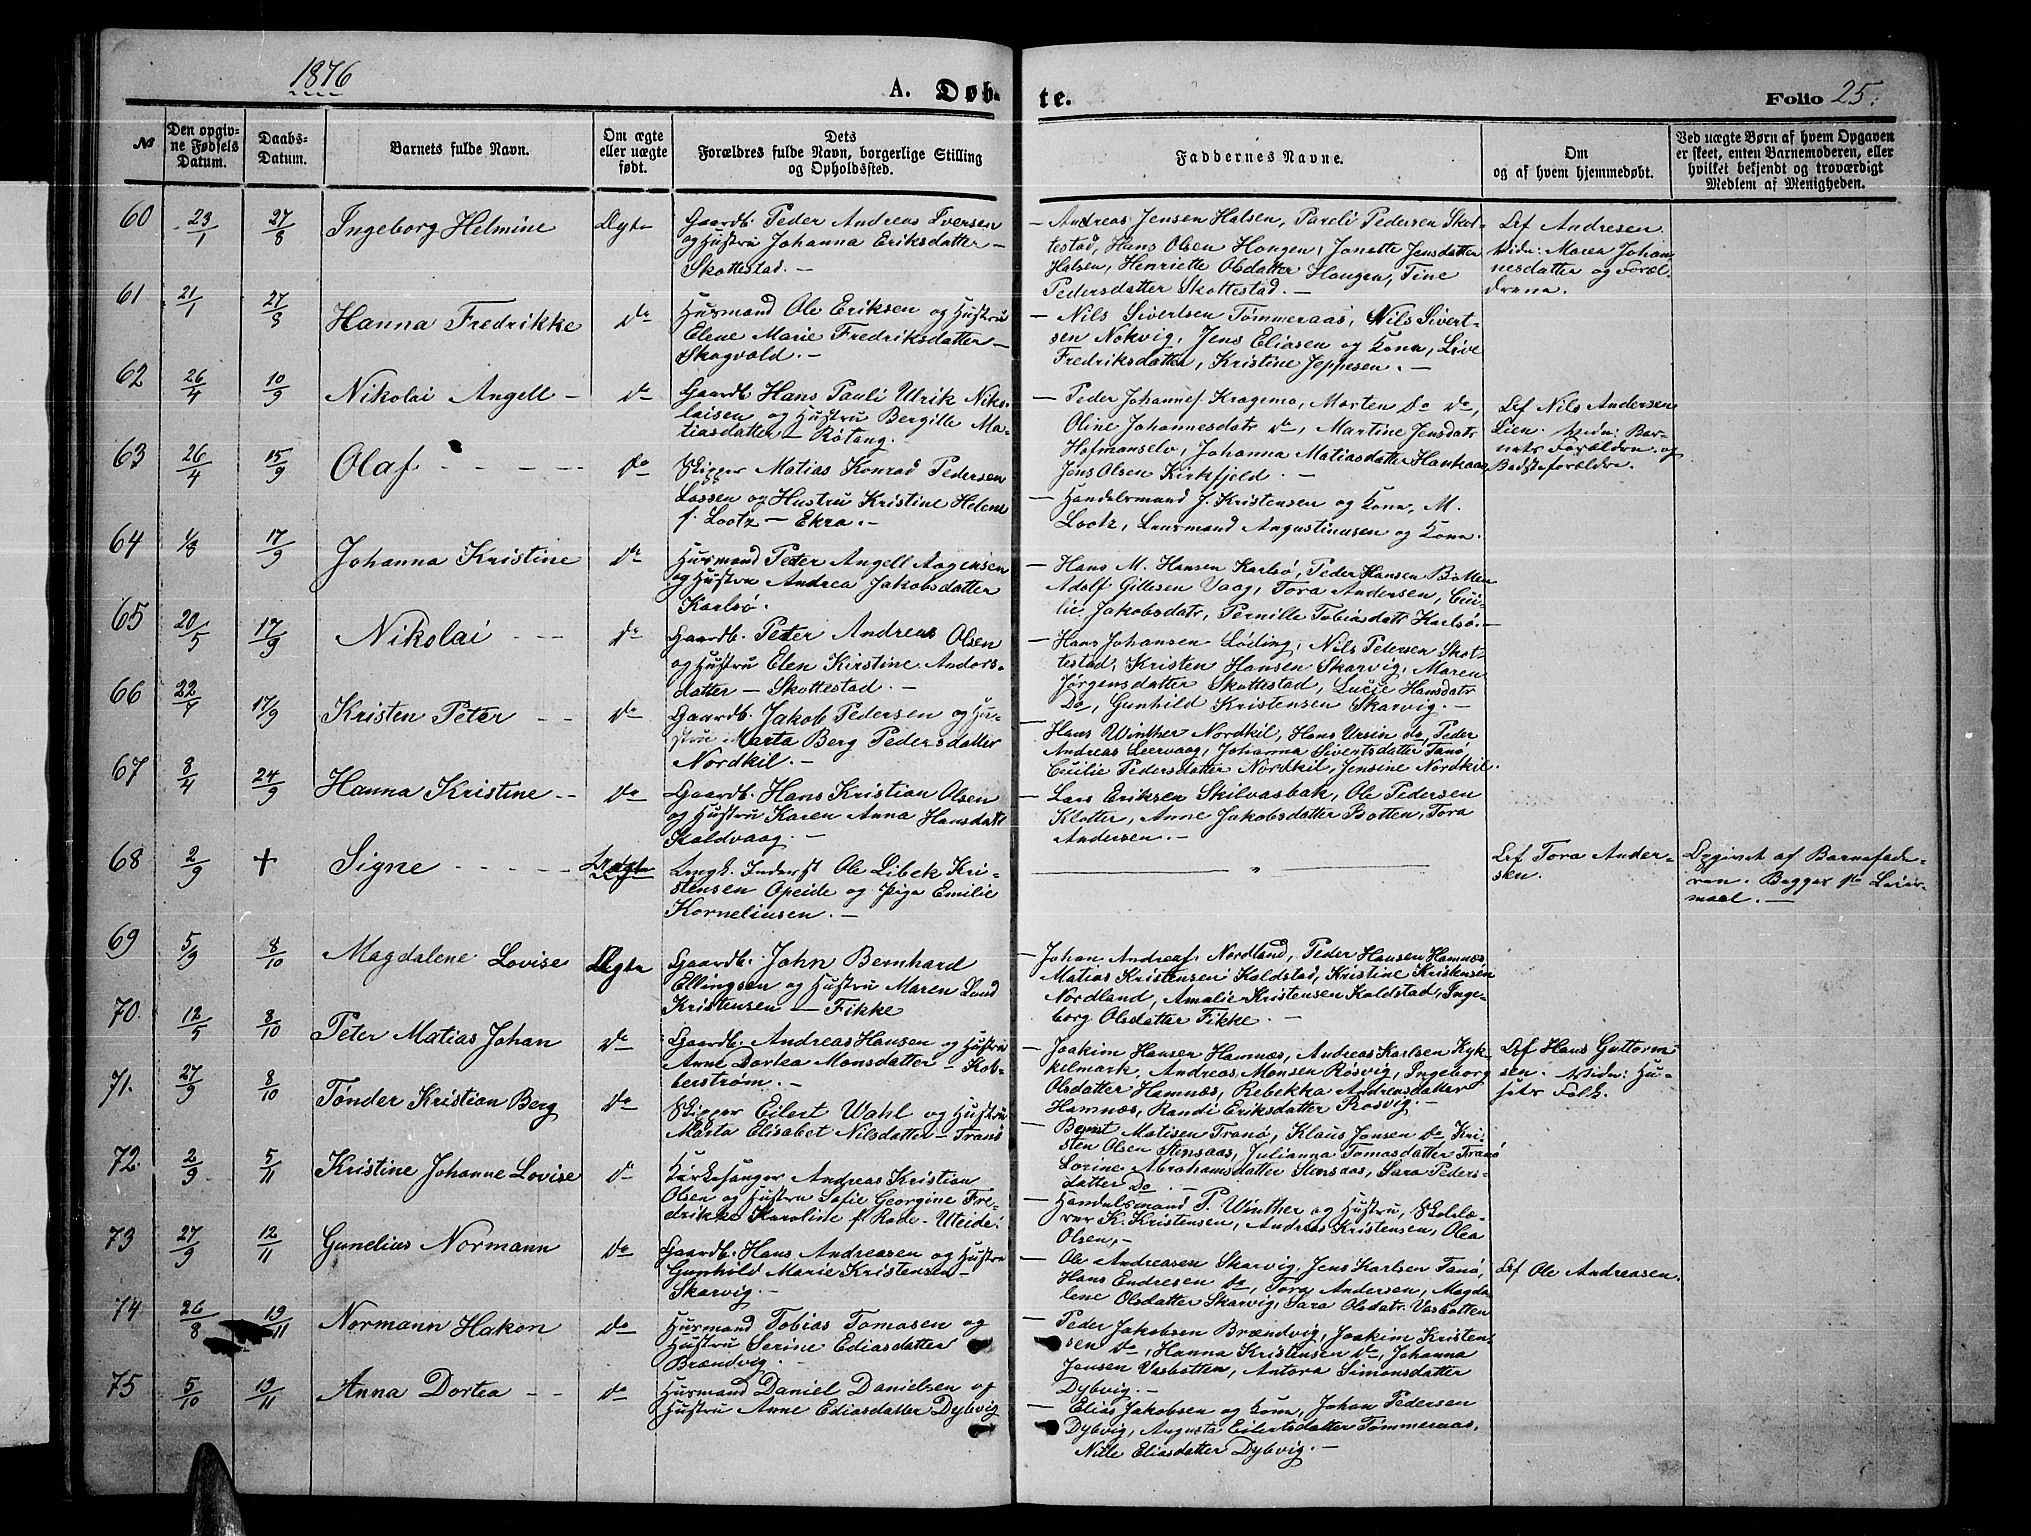 1876
A. Døb-
te.
Folio 25.
No
Den opgiv-
ne Fødsels
Datum.
Daabs-
Datum.
Barnets fulde Navn.
Om ægte
eller uægte
født.
Dets
Forældres fulde Navn, borgerlige Stilling
og Opholdssted.
Faddernes Navne.
Om
og af hvem hjemmedøbt.
Ved uægte Børn af hvem Opgaven
er skeet, enten Barnemoderen, eller
hvilket bekjendt og troværdigt
Medlem af Menigheden.
60 23/1 27/8 Ingeborg Helmine Ægte
Gaardb. Peder Andreas Iversen
og Hustru Johanna Eriksdatter –
Skottestad. –
– Andreas Jensen Halsen, Pareli Pedersen Skot-
testad, Hans Olsen Haugen, Jonette Jensdatter
Halsen, Henriette Olsdatter Haugen, Tine
Pedersdatter Skottestad. –
Af Andresen.
Vidn: Maren Johan-
nesdatter og Foræl-
drene.
61 21/1 27/8 Hanna Fredrikke do
Husmand Ole Eriksen og Hustru
Elene Marie Fredriksdatter –
Skogvold. –
– Nils Sivertsen Tømmeraas, Nils Sivert-
sen Nokvig, Jens Eliasen og Kona, Live
Fredriksdatter, Kristine Jeppesen. –
62 26/4 10/9 Nikolai Angell – do
Gaardb. Hans Pauli Ulrik Niko-
laisen og Hustru Bergitte Ma-
tiasdatter – Røtang. –
– Peder Johannes. Kragemo, Morten do do,
Oline Johannesdatr do, Martine Jensdatr
Hofmanselv, Johanna Matiasdatter Haukaas
Jens Olsen Kirkfjeld. –
Af Nils Andersen
Lien. Vidn: Bar-
nets Forældre og
Bedsteforældre.
63 26/4 15/9 Olaf – – – – do
Skipper Matias Konrad Pedersen
Lossen og Hustru Kristine Helene
f. Lootz – Ekra. –
– Handelsmand J. Kristensen og Kona, M.
Lootz, Lensmand Augustinusen og Kona.
64 1/8 17/9 Johanna Kristine do
Husmand Peter Angell Aagensen
og Hustru Andrea Jakobsdatter
Karlsø.
– Hans M. Hansen Karlsø, Peder Hansen Botten
Adolf Gillesen Vaag, Tora Andersen, Ceci-
lie Jakobsdatr, Pernille Tobiasdatr Karlsø. –
65 20/5 17/9 Nikolai – – do
Gaardb. Peter Andreas Olsen
og Hustru Elen Kirstine Andors-
datter – Skottestad. –
– Hans Johansen Løding, Nils Pedersen Skot-
testad, Kristen Hansen Skarvig, Maren
Jørgensdatter Skottestad, Lucie Hansdatr
Do, Gunhild Kristensen Skarvig. –
66 22/4 17/9 Kristen Peter – – do
Gaardb. Jakob Pedersen og Hu-
stru Marta Berg Pedersdatter
Nordkil. –
– Hans Winther Nordkil, Hans Ursin do, Peder
Andreas Leervaag, Johanna Sivertsdatter Tanø
Cecilie Pedersdatter Nordkil, Jensine Nordkil.
67 8/4 24/9 Hanna Kristine – – do
Gaardb. Hans Kristian Olsen
og Hustru Karen Anna Hansdatr
Kaldvaag. –
– Lars Eriksen Skilvasbak, Ole Pedersen
Klotter, Anne Jakobsdatter Botten, Tora
Andersen. –
68 2/9 + Signe – – – – Uægte
Ungk. Inderst Ole Libek Kri-
stensen Opeide og Pige Emilie
Korneliusen. –
"
Af Tora Ander-
sen.
Opgivet af Barnefade-
ren. Begges 1ste Leier-
maal. –
69 5/9 8/10 Magdalene Lovise Ægte
Gaardb. John Bernhard
Ellingsen og Hustru Maren Lund
Kristensen – Fikke
– Johan Andreas. Nordland, Peder Hansen Hamnæs
Matias Kristensen Kaldstad, Kristine Kristensen
Nordland, Amalie Kristensen Kaldstad, Inge-
borg Olsdatter Fikke. –
70. 12/5 8/10 Peter Matias Johan do
Gaardb. Andreas Hansen og Hustru
Anne Dortea Monsdatter – Kob-
berstrøm. –
– Joakim Hansen Hamnæs, Andreas Karlsen Kyk-
kelmark, Andreas Monsen Røsvig, Ingeborg
Olsdatter Hamnæs, Rebekka Andreasdatter
Hamnæs, Randi Eriksdatter Røsvig. –
Af Hans Guttorm-
sen. Vidn: Hu-
sets Folk.
71. 27/9 8/10 Tønder Kristian Berg do
Skipper Eilert Wahl og Hustru
Marta Elisabet Nilsdatter – Tranø
– Bernt Matisen Tranø, Klaus Jensen do, Kri-
sten Olsen Stensaas, Julianna Tomasdatter Tranø
Lorine Abrahamsdatter Stensaas, Sara Peders-
datter Do –
72. 2/9 5/11 Kristine Johanne Lovise do
Kirkesanger Andreas Kristian
Olsen og Hustru Sofie Georgine Fre-
drikke Karoline f. Rode – Uteide.
– Handelsmand P. Winther og Hustru, Skolelæ-
rer K. Kristensen, Andreas Kristensen, Olea
Olsen, –
73 27/9 12/11 Gunelius Normann do
Gaardb. Hans Andreasen og Hustru
Gunhild Marie Kristensen –
Skarvig. –
– Ole Andreasen Skarvig, Jens Karlsen Tanø,
Hans Endresen do, Tora Andersen, Magda-
lene Olsdatter Skarvig, Sara Olsdatr. Vasbotten
Af Ole Andreasen.
74 26/8 19/11 Normann Hakon do
Husmand Tobias Tomasen og
Hustru Serine Ediasdatter
Brændvig. –
– Peder Jakobsen Brændvig, Joakim Kristen-
sen do, Hanna Kristensen do, Johanna
Jensen Vasbotten, Antora Simonsdatter
Dybvig. –
75 5/10 19/11 Anna Dortea – – do
Husmand Daniel Danielsen og
Hustru Anne Ediasdatter Dybvig
– Elias Jakobsen og Kona, Johan Pedersen
Dybvig, Augusta Eilertsdatter Tømmeraas,
Nille Eliasdatter Dybvig. –